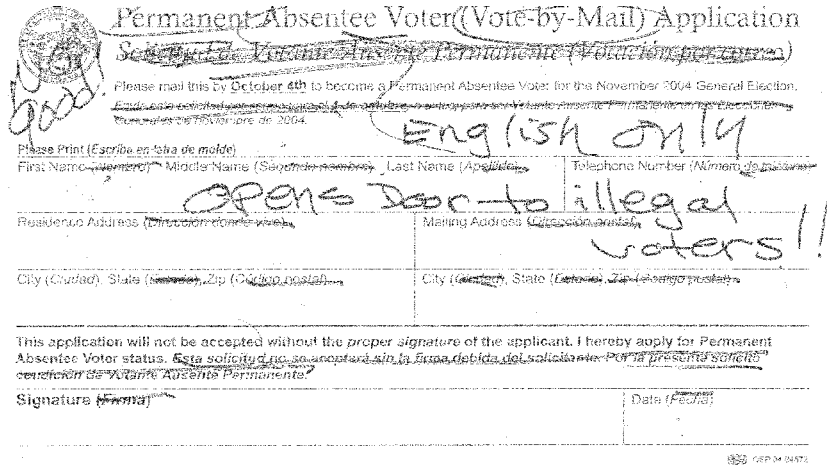 Permanent Absentee Voter (Vote-by-Mail) Application
Solicitud de Votante Ausente Permanente (Votación por correo)
good!
Please mail this by October 4th to become a Permanent Absentee Voter for the November 2004 General Election.
Envíe esta solicitud 4 de octubre Votante Ausente Permanente en las Elecciones
Generales de noviembre de 2004.
English only
Please Print (Escriba en letra de molde)
First Name (Nombre) Middle Name (Segundo nombre) Last Name (Apellido) Telephone Number (Número de teléfono)
Opens Door to illegal
Residence Address (Dirección donde vive) Mailing Address (Dirección postal)
voters!!
City (Ciudad), State (Estado), Zip (Código postal) City (Ciudad), State (Estado), Zip (Código postal)
This application will not be accepted without the proper signature of the applicant. I hereby apply for Permanent
Absentee Voter status. Esta solicitud no se aceptará sin la firma debida del solicitante. Por la presente solicito
condición de Votante Ausente Permanente.
Signature (Firma) Date (Fecha)